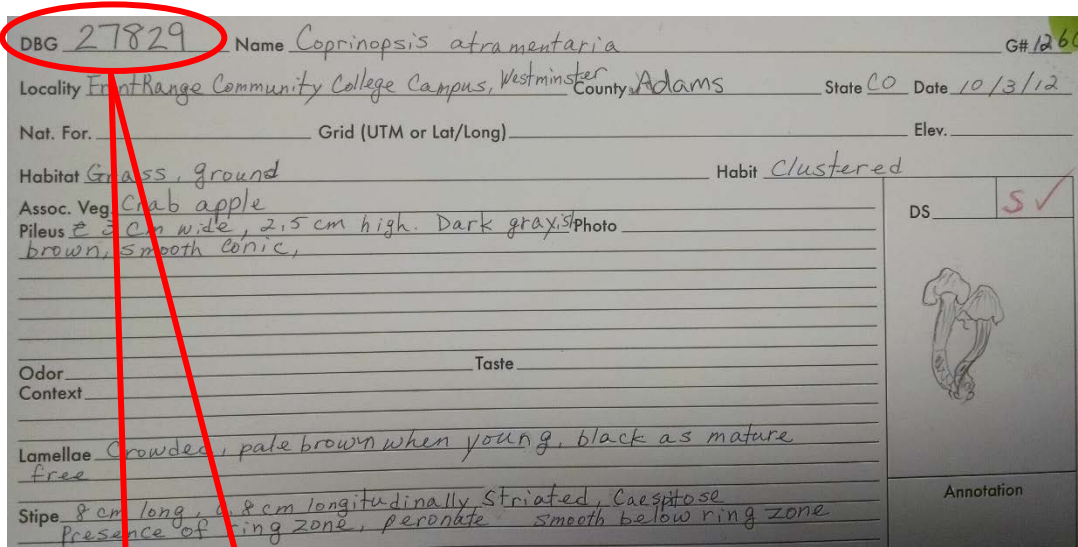 DBG 27829 Name Coprinopsis atramentaria G# 1260
Locality FrontRange Community College Campus, Westminster County Adams State CO Date 10/3/12
Nat. For. Grid (UTM or Lat/Long) Elev.
Habitat Grass, ground Habit Clustered
Assoc. Veg. Crab apple DS S ✓
Pileus 3 cm wide, 2,5 cm high. Dark grayish Photo
brown, smooth conic,
Odor Taste
Context
Lamellae Crowded, pale brown when young, black as mature
free
Annotation
Stipe 8 cm long, 0.8 cm longitudinally striated, Caespitose
Presence of ring zone, peronate smooth below ring zone